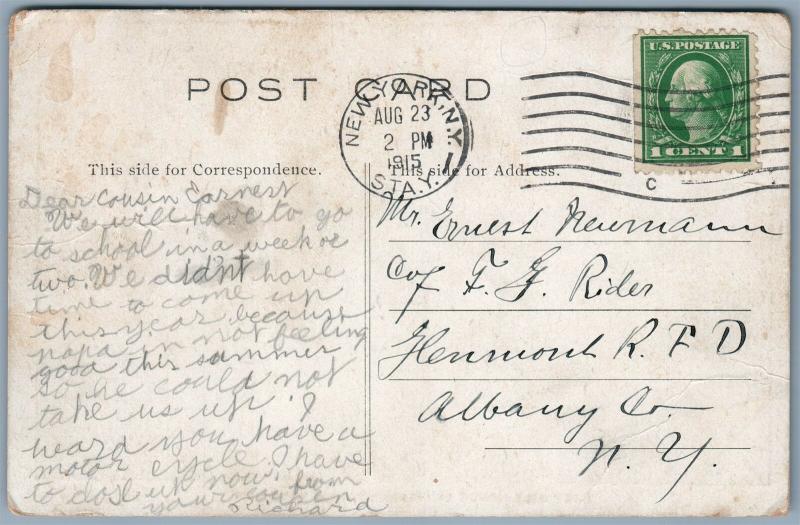 POST CARD
U.S. POSTAGE
1 CENT 1
NEW YORK, N.Y.
AUG 23
2 PM
1915
STA. Y.
1
C
This side for Correspondence.
This side for Address.
Dear Cousin Earnest
We will have to go
to school in a week or
two. We didn't have
time to come up
this year because
papa in not feeling
good this summer
so he could not
take us up. I
heard you have a
motor cycle. I have
to close up now, from
your cousen
Richard
Mr. Ernest Newmann
C/of F. G. Rider
Glenmont R. F D
Albany Co.
N. Y.